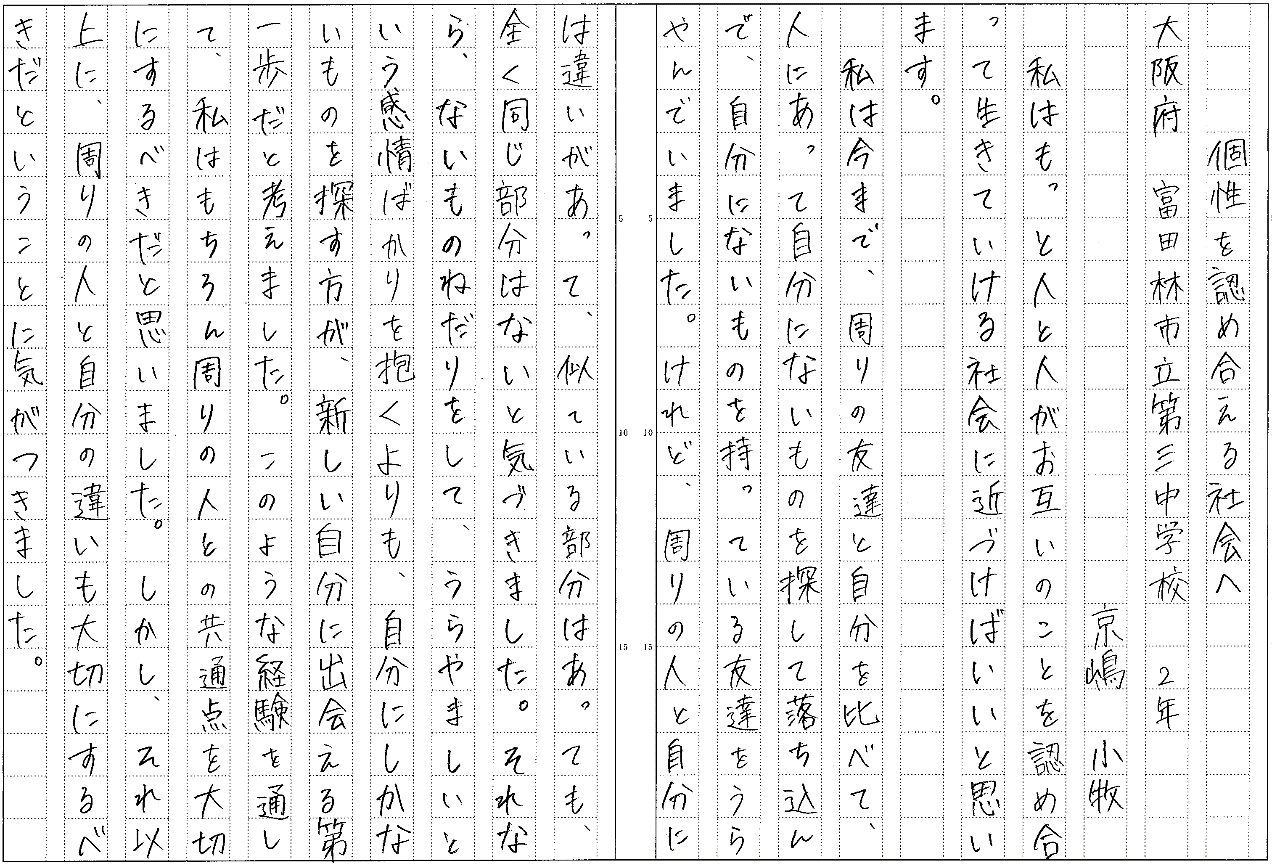 個性を認め合える社会へ
大阪府 富田林市立第三中学校 2年
京嶋 小牧
私はもっと人と人がお互いのことを認め合
って生きていける社会に近づけばいいと思い
ます。
私は今まで、周りの友達と自分を比べて、
人にあって自分にないものを探して落ち込ん
で、自分にないものを持っている友達をうら
やんでいました。けれど、周りの人と自分に
は違いがあって、似ている部分はあっても、
全く同じ部分はないと気づきました。それな
ら、ないものねだりをして、うらやましいと
いう感情ばかりを抱くよりも、自分にしかな
いものを探す方が、新しい自分に出会える第
一歩だと考えました。このような経験を通し
て、私はもちろん周りの人との共通点を大切
にするべきだと思いました。しかし、それ以
上に、周りの人と自分の違いも大切にするべ
きだということに気がつきました。
5 5
10 10
15 15